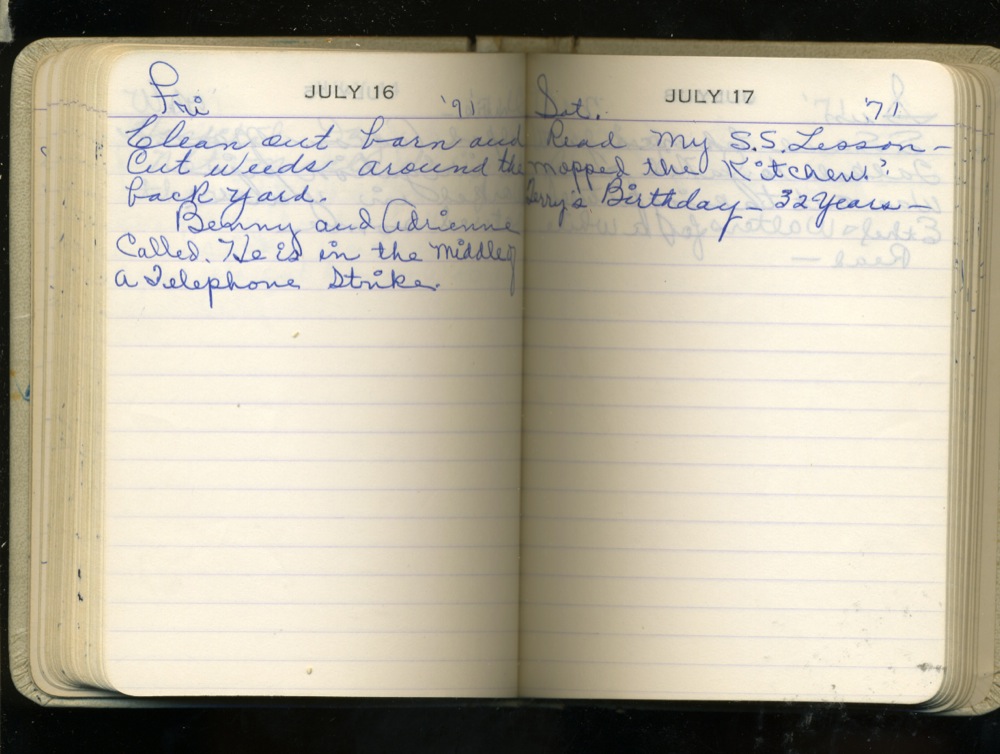 JULY 16
Fri '71
Clean out barn and
Cut weeds around the
back yard.
Benny and Adrienne
Called. He is in the middle of
a Telephone Strike.
JULY 17
Sat. '71
Read my S.S. Lesson -
mopped the Kitchen!!
Jerry's Birthday - 32 Years -